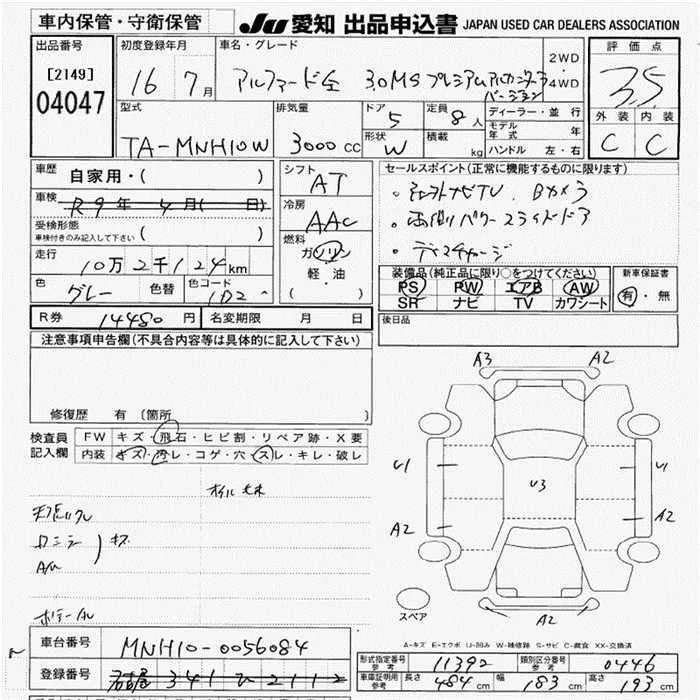 車内保管・守衛保管
JU 愛知 出品申込書 JAPAN USED CAR DEALERS ASSOCIATION
出品番号 初度登録年月 車名・グレード 評価点
[2149]
04047
16 7月 アルファード 3.0MS プレミアムアルカンターラ バージョン 2WD・4WD 3.5
外装 内装
C C
型式 排気量 ドア 定員 ディーラー・並行
TA-MNH10W 3000cc 5 8人
モデル年式 年
形状 W 積載 kg ハンドル 左・右
車歴 自家用・( )
シフト AT
セールスポイント(正常に機能するものに限ります)
車検 R9年 4月( 日)
受検形態
車検付きのみ記入して下さい ( )
冷房 AAC
・ナビTV. Bカメラ
・両側パワースライドドア
走行 10万2千124km
燃料 ガソリン
軽・油
( )
色 グレー 色替 色コード 1D2
装備品(純正品に限り○をつけてください) 新車保証書
PS PW エアB AW 有・無
SR ナビ TV カワシート
R券 14480円 名変期限 月 日
後日品
注意事項申告欄(不具合内容等は具体的に記入して下さい)
修復歴 有 (箇所
検査員記入欄 FW キズ・飛石・ヒビ割・リペア跡・X要
内装 キズ・汚レ・コゲ・穴・スレ・キレ・破レ
A3 A2
U1 U3 U1
A2 A2
スペア A2
A-キズ E-エクボ U-凹み W-補修跡 S-サビ C-腐食 XX-交換済
車台番号 MNH10-0056084
登録番号 341 ひ 2112
形式指定番号 参考 11392 類別区分番号 参考 0446
車庫証明用 参考 長さ 484cm 幅 183cm 高さ 193cm